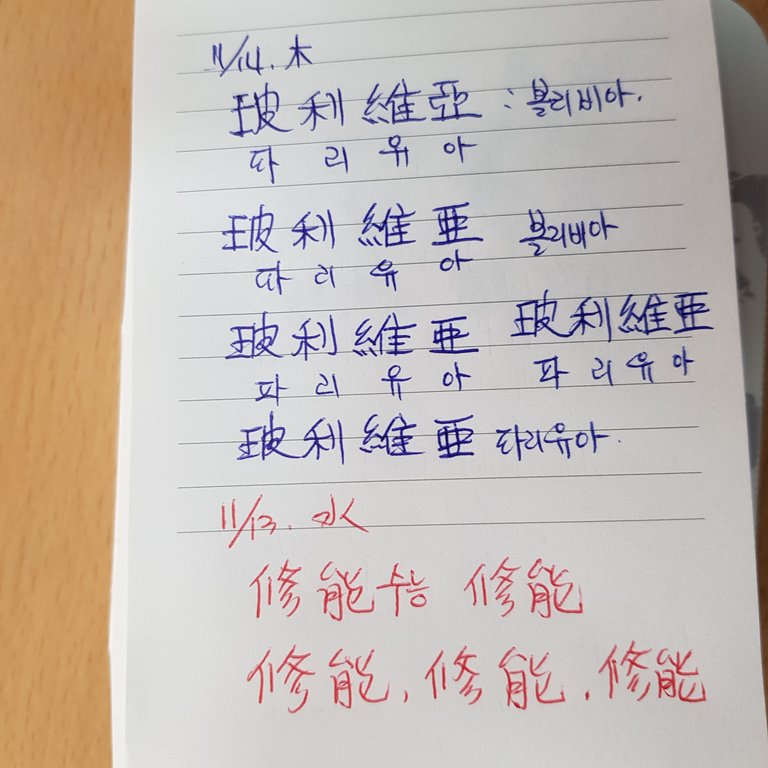 11/14. 木
玻利維亞 : 볼리비아.
파 리 유 아
玻利維亞 볼리비아
파 리 유 아
玻利維亞 玻利維亞
파 리 유 아 파 리 유 아
玻利維亞 파리유아.
11/13. 水
修能 수능 修能
修能, 修能, 修能